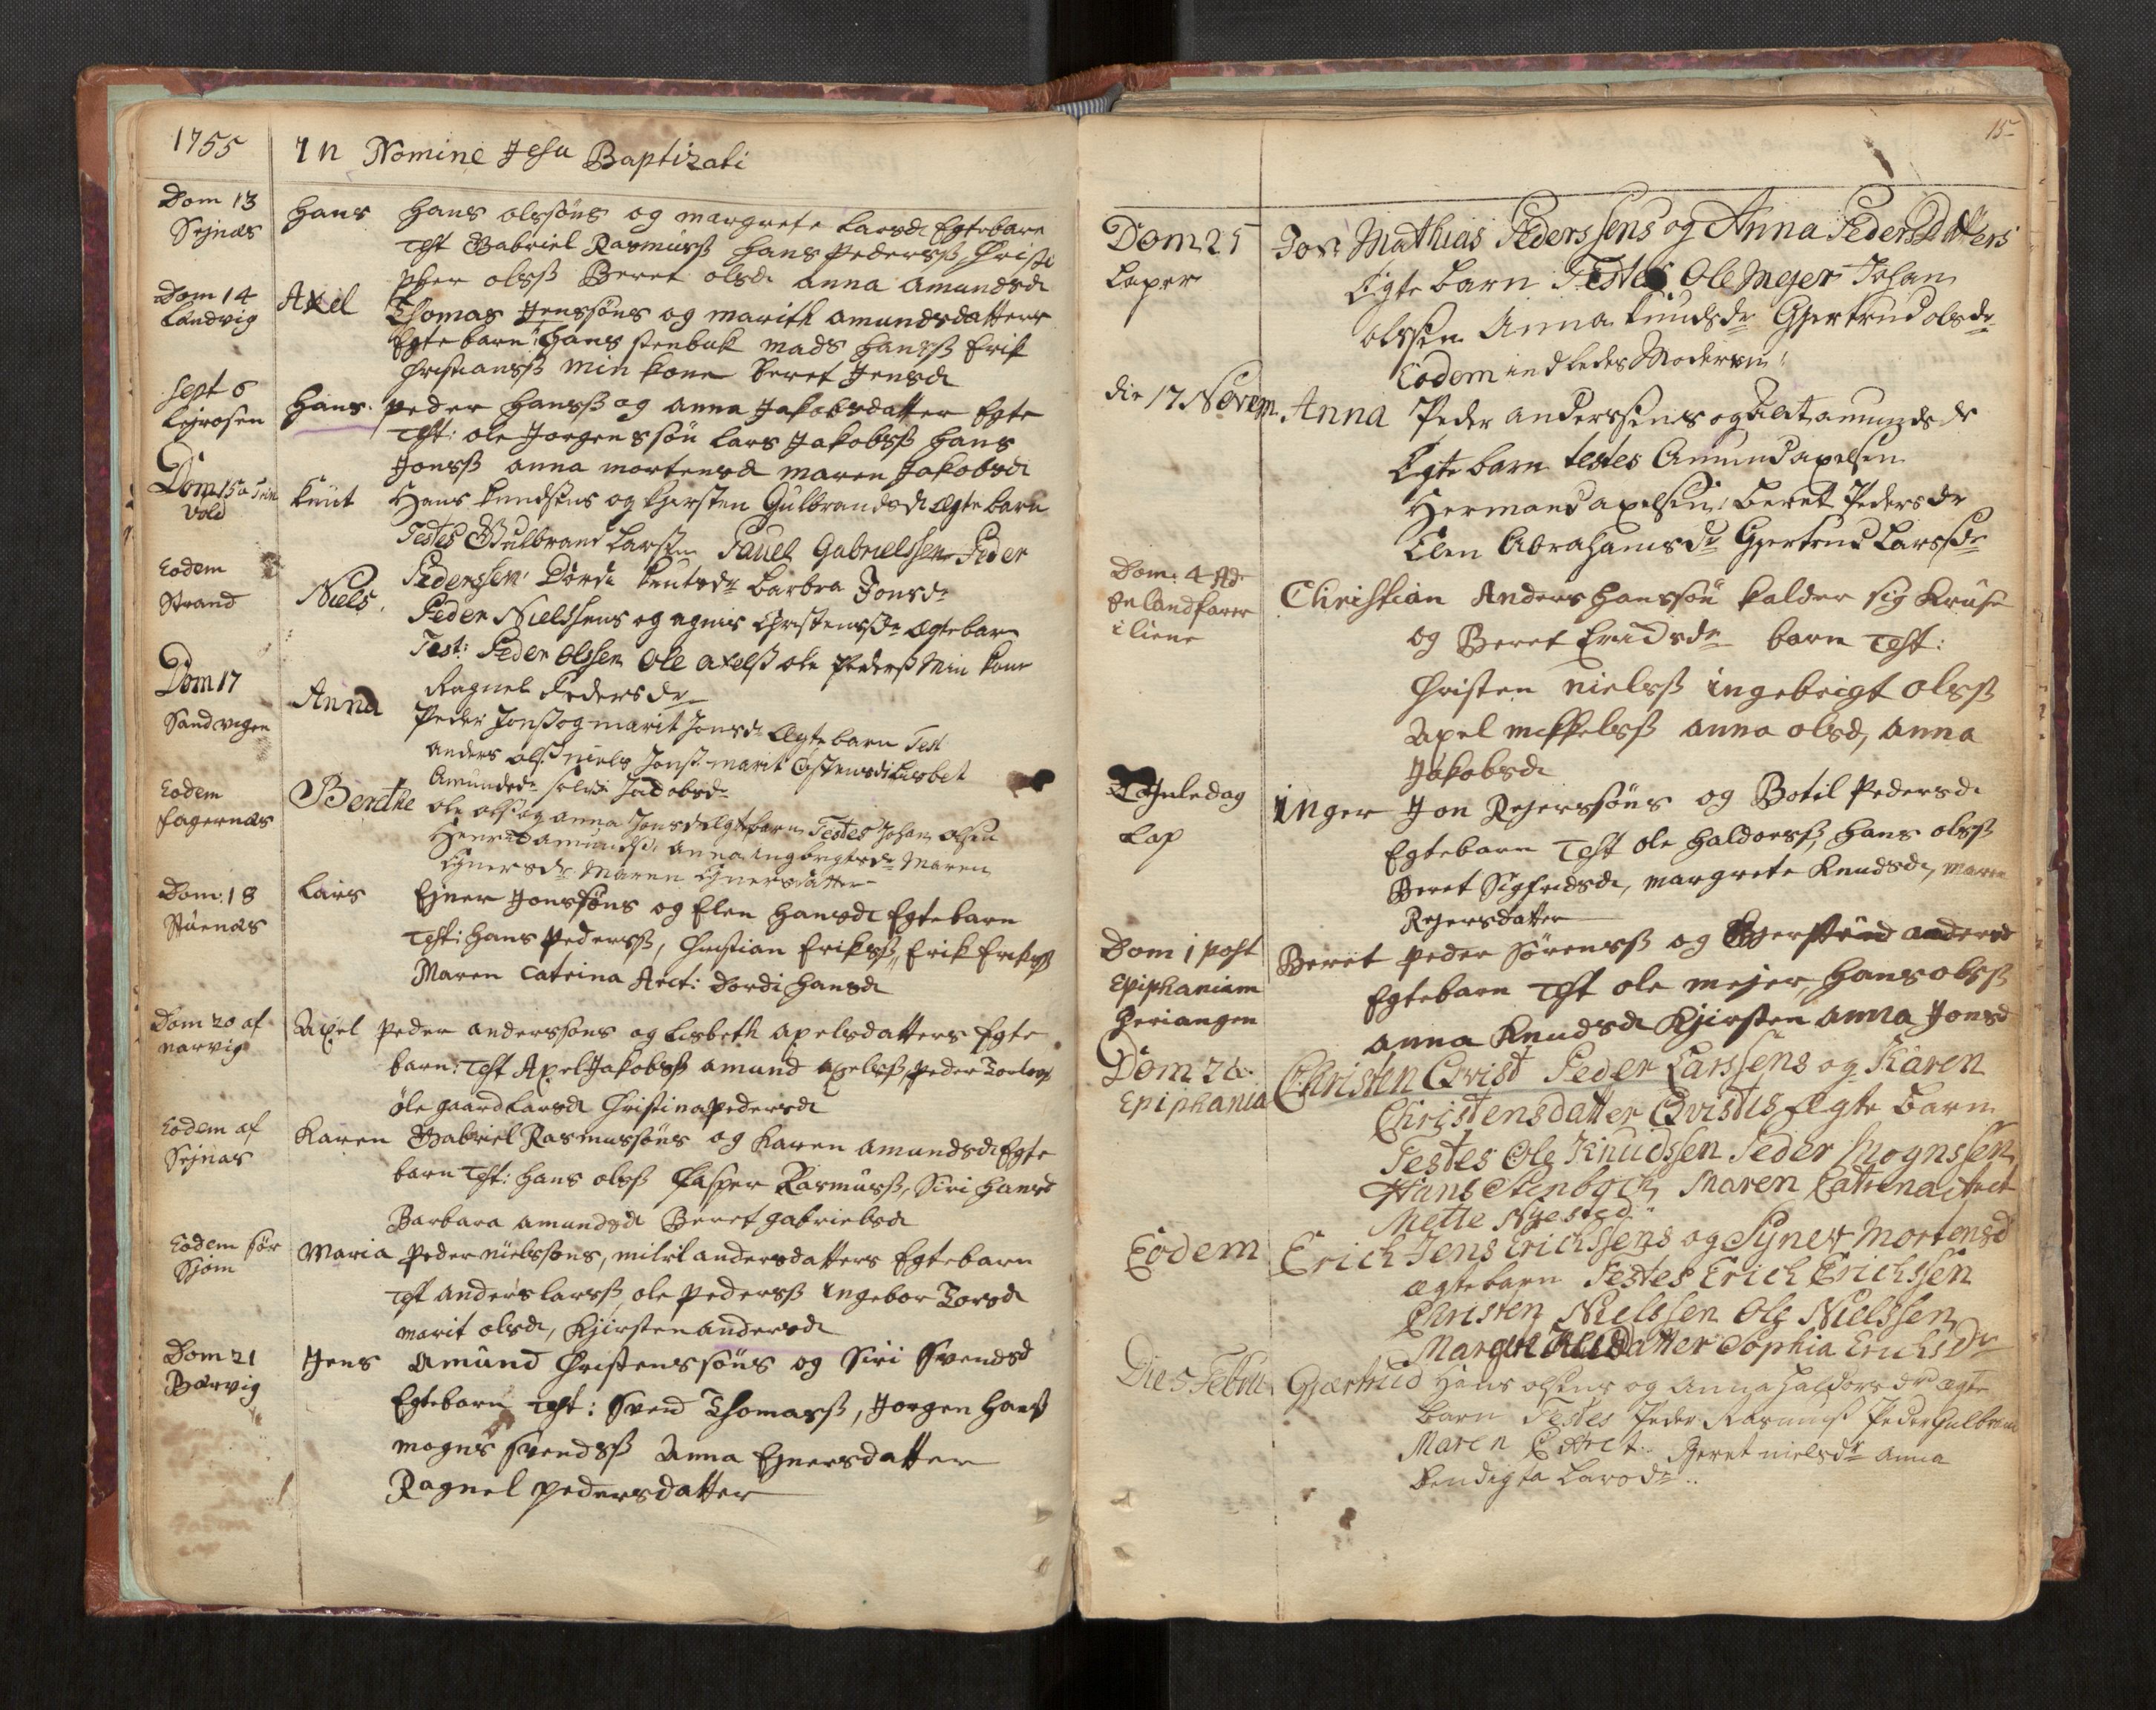 1755
In Nomine Jesu Baptizati
Dom 13
Sejnæs
Hans Hans olssøns og margrete Larsd Egtebarn
Test Gabriel Rasmusß Hans Pedersß, Christo
pher olsß Beret olsd anna amundsd
Dom 14
Landvig
Axel Thomas Jenssøns og marith amundsdatters
Egte barn: Hans stenbuk mads Hansß Erik
Christiansß min kone Beret Jensd
Sept 6
Lejrosen
Hans. Peder Hansß og anna Jakobsdatter Egte
Test: ole Jorgenssøn Lars Jakobsß Hans
Jonsß anna mortensd maren Jakobsd
Dom 15 a Trin
vold
Knut Hans Knudsens og Kjersten Gulbrandsd ægte barn
Testes Gulbrand Larssen Pauel Gabrielssen Peder
Pederssen Dordi Knutsdr Barbra Jonsdr
Eodem
Strand
Niels. Peder Nielssens og agnis Christensdr ægte barn
Test: Peder Olssen Ole axelsß ole Pedersß Min kone
Ragnel Pedersdr
Dom 17
Sandvigen
Anna Peder Jonsß og marit Jonsd Ægte barn Test
anders olsß niels Jonsß marit Lisbet
Amundsdr Jacobsdr
Eodem
fagernæs
Berethe ole olsß og anna Jonsd Ægtebarn Testes Johan olsen
anna ingbrigtsdr Maren
Ejnersdr Maren Ejnersdatter
Dom: 18
Stuenæs
Lars Ejner Jonssøns og Elen Hansd Egtebarn
Test: Hans Pedersß, Christian Eriksß, Erik Eriksß
Maren Catrina Arct: Dordi Hansd
Dom 20 af
narvig
Axel Peder anderssøns og Lisbeth axelsdatters Egte
barn: Test Axel Jakobsß amund axelsß, Peder
øle gaard Larsd Christina pedersd
Eodem af
Sejnæs
Karen Gabriel Rasmussøns og Karen amundsd Egte
barn Test: Hans olsß Casper Rasmusß, Siri Hansd
Barbara amundsd Beret gabrielsd
Eodem sør
Sjom
Maria Peder nielssøns, andersdatters Egtebarn
Test anders larsß, ole Pedersß Ingebor Torsd
marit olsd, Kjirsten andersd
Dom 21
Bervig
Jens Amund Christenssøns og Siri Svendsd
Egtebarn Test: Svend Thomasß, Jorgen Hansß
mogns svendsß Anna Ejnersdatter
Ragnel pedersdatter
15
Dom 25
Laper
Jon Mathias Pederssens og Anna Peders Datters
Egte barn Testes Ole Mejer Johan
olssen Anna Knudsdr Gjertrud olsdr
Eodem indledes Moderen
die 17 Novem
Anna Peder anderssens og amundsdr
Egte barn testes Amund axelsen
Hermand axelsen: Beret Pedersdr
Elen Abrahamsdr Gjertrud Larssdr
Dom. 4 Ad
En landfarer
i liene
Christian Anders Hanssøn kalder sig Kruse
og Beret barn Test:
Christen nielsß ingebrigt olsß
Axel mikkelsß anna olsd, anna
Jakobsd
Juledag
Lap
inger Jon Rejerssøns og Botil Pedersd
Egtebarn Test ole Haldorsß, Hans olsß
Beret Sigfridsd, margrete Knudsd, maren
Rejersdatter
Dom 1 post
Epiphaniam
Heriangen
Beret Peder Sørensß og andersd
Egtebarn Test ole mejer, Hans olsß
anna Knudsd Kjirsten anna Jonsd
Dom 2 a
Epiphania
Christen Qvist Peder Larssens og Karen
Christensdatter Qvistes Ægte Barn
Testes Ole Knudssen Peder Mognssen
Hans Stenboch Maren Catrina Arct
Mette Nyested
Eodem
Erich Jens Erichssens og Synev Mortensd
ægte barn Testes Erich Erichssen
Christen Nielssen Ole Nielssen
Datter Sophia Erichsdr
Die 5 Febru
Gjærtrud Hans olsens og Anna Haldorsdr ægte
Barn Testes Peder Rasmusß Peder Gulbrand
Maren C Arct. Beret nielsdr anna
Bendigta Larsdr..